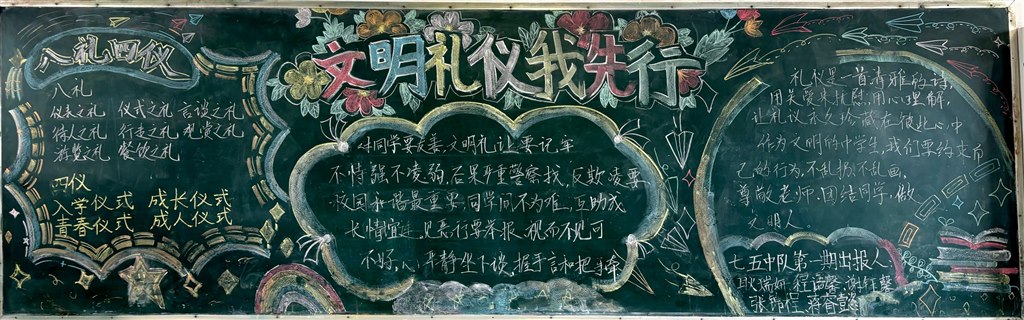 文明礼仪我先行
八礼四仪
八礼
仪表之礼 仪式之礼 言谈之礼
待人之礼 行走之礼 观赏之礼
游览之礼 餐饮之礼
四仪
入学仪式 成长仪式
青春仪式 成人仪式
对同学要友善文明礼让要记牢
不恃强不凌弱,后果严重警察找,反欺凌要
校园和谐最重要,同学间不为难,互助成
长情谊 见恶行要举报 视而不见可
不好,心平静坐下谈,握手言和把手牵
礼仪是一首清雅的诗
用关爱来 用心理解,
让礼仪永久珍藏在彼此心中
作为文明的中学生,我们要约束自
己的行为,不乱扔不乱画,
尊敬老师,团结同学,做
文明人
七五中队第一期出报人